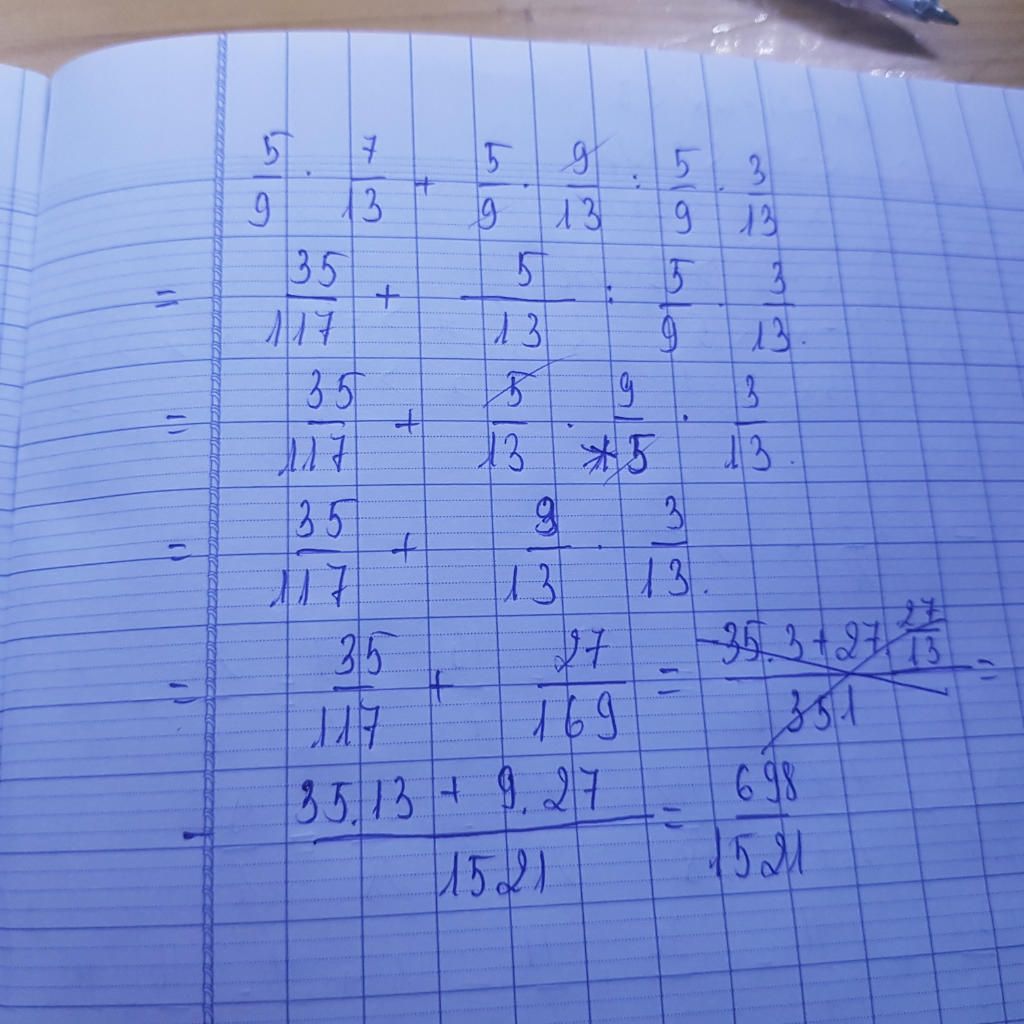 5/9 . 7/13 + 5/9 . 9/13 : 5/9 . 3/13
= 35/117 + 5/13 : 5/9 . 3/13.
= 35/117 + 5/13 . 9/5 . 3/13.
= 35/117 + 9/13 . 3/13.
= 35/117 + 27/169 = 35.3+27 27/13 / 351 =
- 35.13 + 9.27 / 1521 = 698/1521